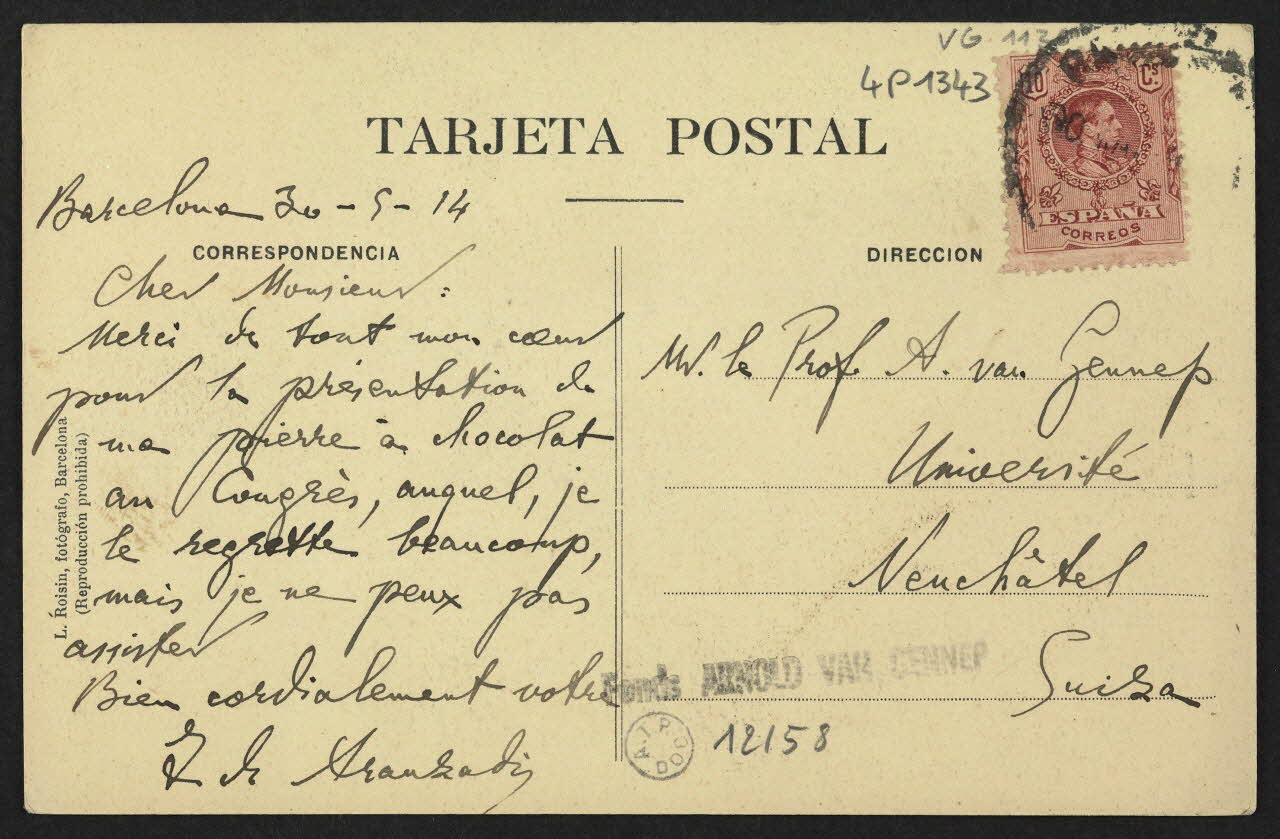 VG 113
4P1343
TARJETA POSTAL
10 Cs.
ESPAÑA
CORREOS
Barcelona 30-5-14
CORRESPONDENCIA
Cher Monsieur:
Merci de tout mon cœur
pour la présentation de
ma pierre à chocolat
au Congrès, auquel, je
le regrette beaucoup,
mais je ne peux pas
assister
Bien cordialement votre
T de Aranzadi
L. Roisin, fotógrafo, Barcelona
(Reproducción prohibida)
DIRECCION
Mr. le Prof. A. van Gennep
Université
Neuchâtel
Suiza
Fonds ARNOLD VAN GENNEP
12158